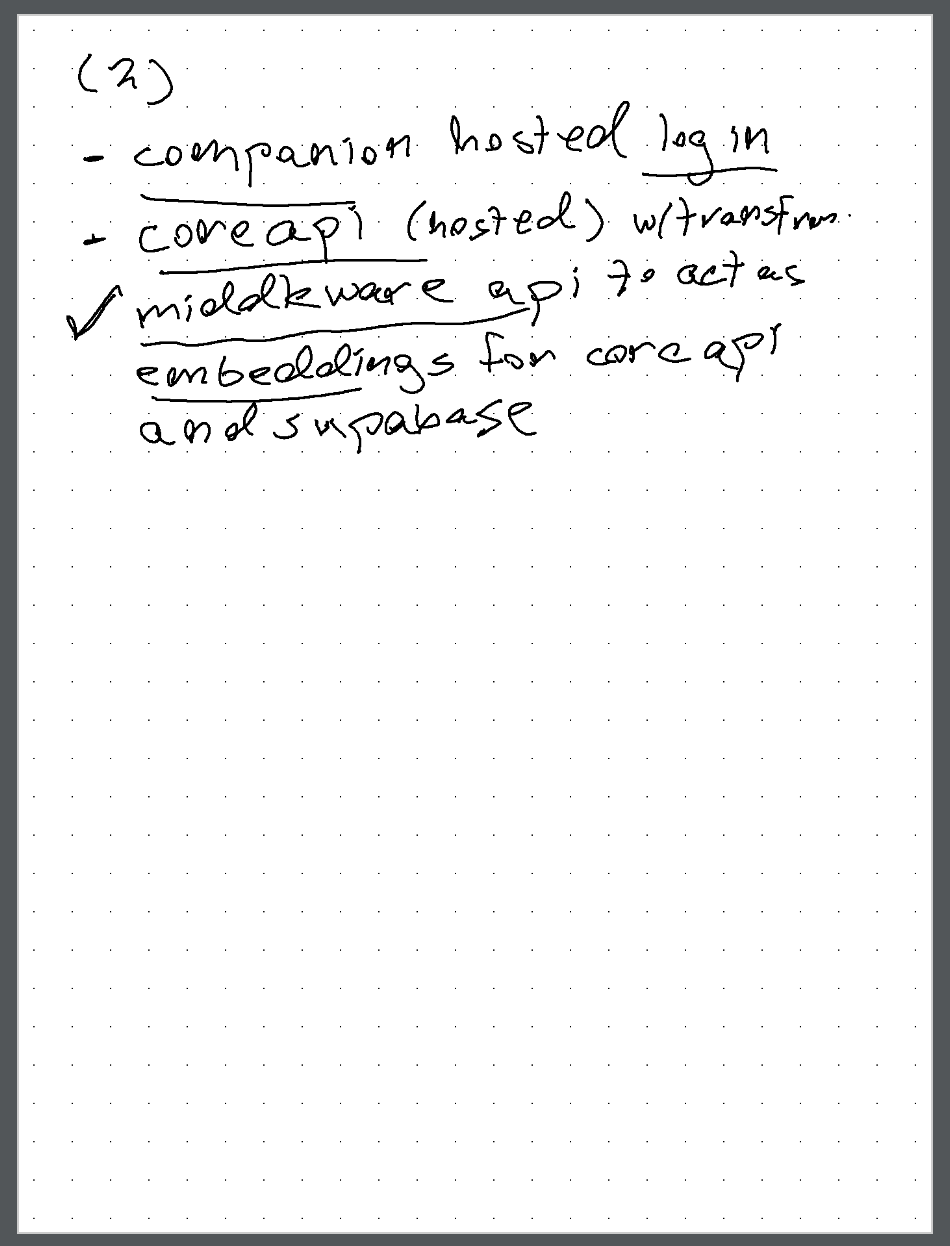 (2)
- companion hosted log in
- core api (hosted) w/transfrm.
✓ middleware api to act as
embeddings for core api
and supabase